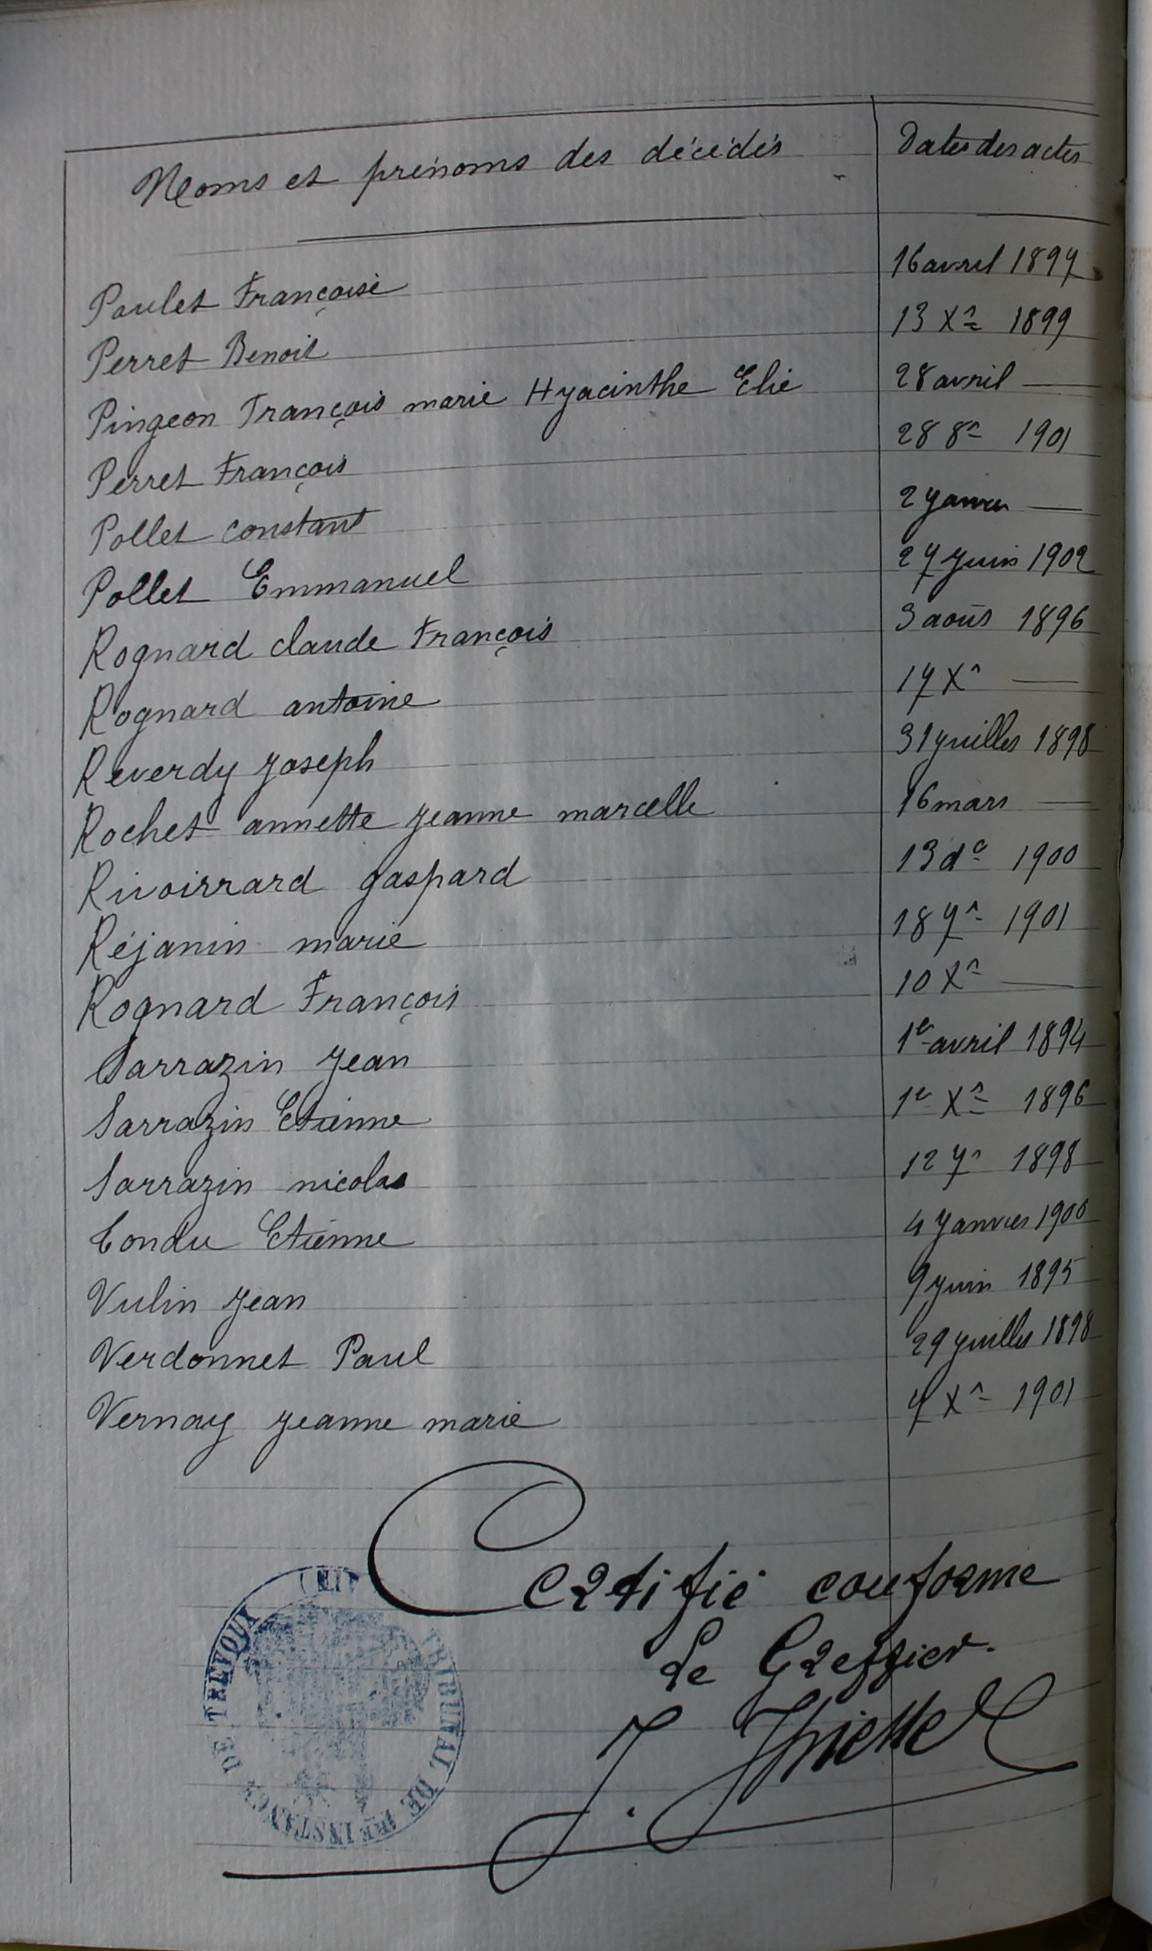 Noms et prénoms des décédés Dates des actes
Poulet Françoise 16 avril 1897
Perret Benoit 13 Xre 1899
Pingeon François marie Hyacinthe Elie 28 avril —
Perret François 28 8re 1901
Pollet constant 2 janvier —
Pollet Emmanuel 27 juin 1902
Rognard claude François 3 août 1896
Rognard antoine 17 Xr —
Reverdy joseph 31 juillet 1898
Rochet annette jeanne marcelle 16 mars —
Rivoirrard gaspard 13 do 1900
Réjanin marie 18 7re 1901
Rognard François 10 Xre —
Sarrazin jean 1er avril 1894
Sarrazin Etienne 1er Xre 1896
Sarrazin nicolas 12 7r 1898
Condu Etienne 4 janvier 1900
Vulin jean 9 juin 1895
Verdonnet Paul 29 juillet 1898
Vernay jeanne marie 7 Xre 1901
Certifié conforme
Le Greffier.
TRIBUNAL DE 1RE INSTANCE DE TREVOUX (AIN)